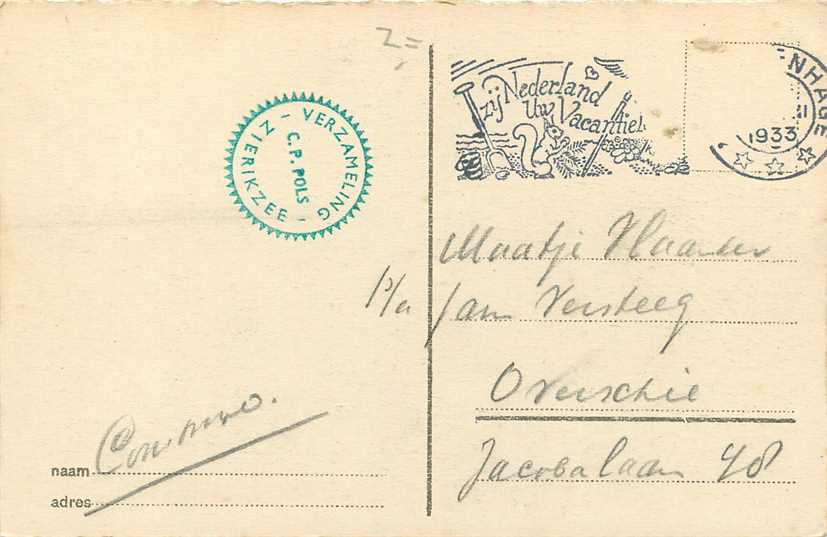 Z=
VERZAMELING
C.P. POLS
ZIERIKZEE
zij Nederland
Uw Vacantie!
NHAGE
1933
Maatje
p/a Jan Versteeg
Overschie
Jacobalaan 48
naam
adres